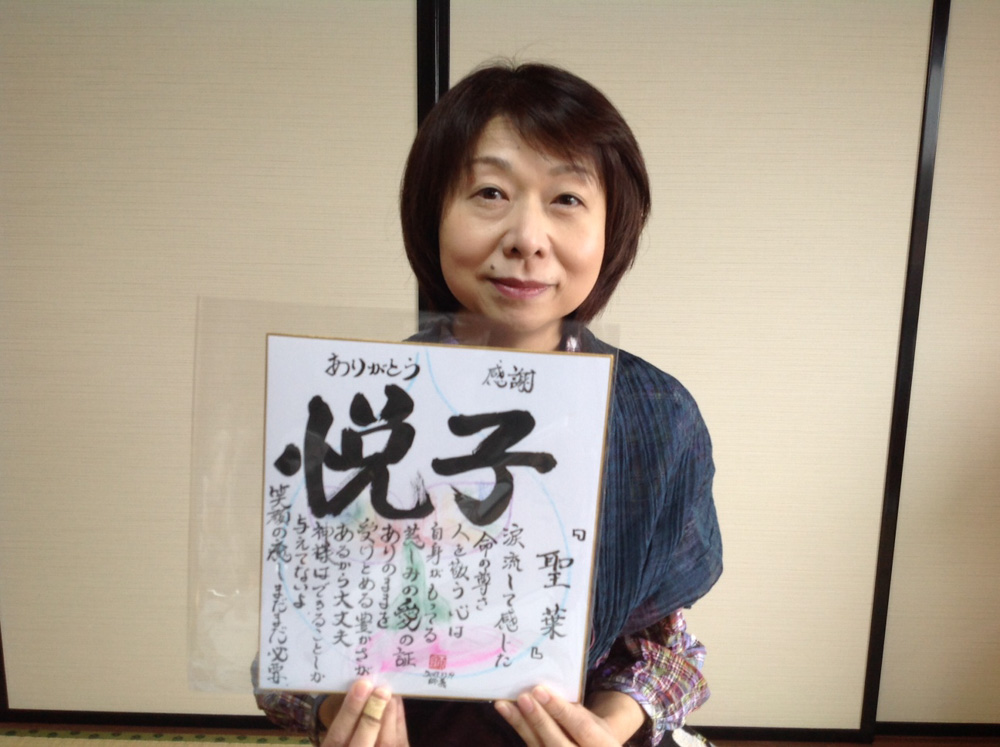 ありがとう
感謝
悦子
『聖葉』
涙流して感じた
命の尊さ
人を敬う心は
自身がもてる
慈しみの愛の証
ありのままを
受けとめる豊かさが
あるから大丈夫
神様はできることしか
与えてないよ